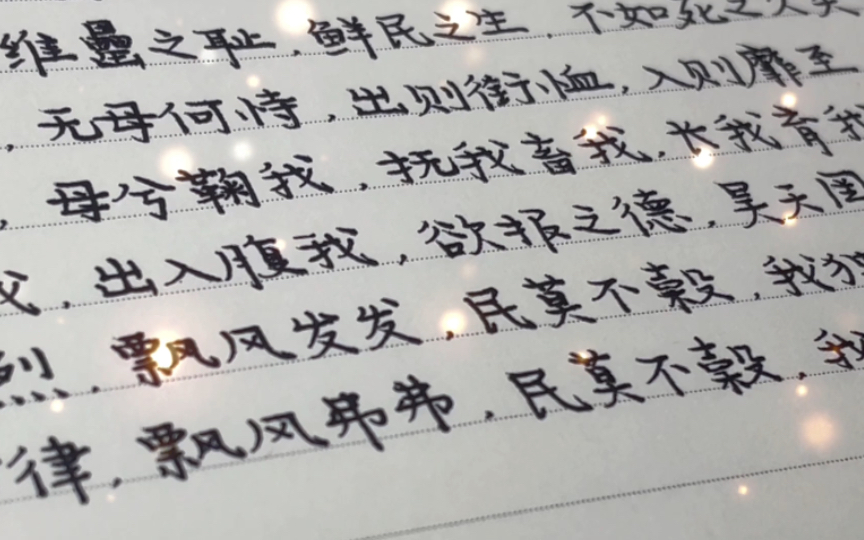 维罍之耻，鲜民之生，不如死之久矣
，无母何恃，出则衔恤，入则靡至
，母兮鞠我，抚我畜我，长我育我
我，出入腹我，欲报之德，昊天罔
烈，飘风发发，民莫不穀，我独
律，飘风弗弗，民莫不穀，我